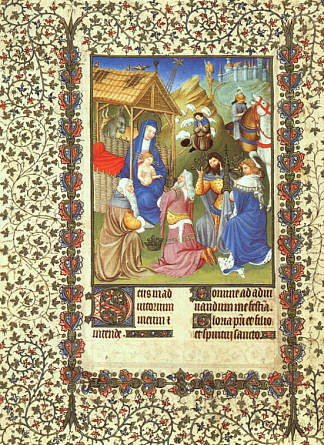 Deus in ad
iutorium
meum i
ntende
Domine ad adiu
uandum me festina
Gloria pri et filio
et spiritui sancto